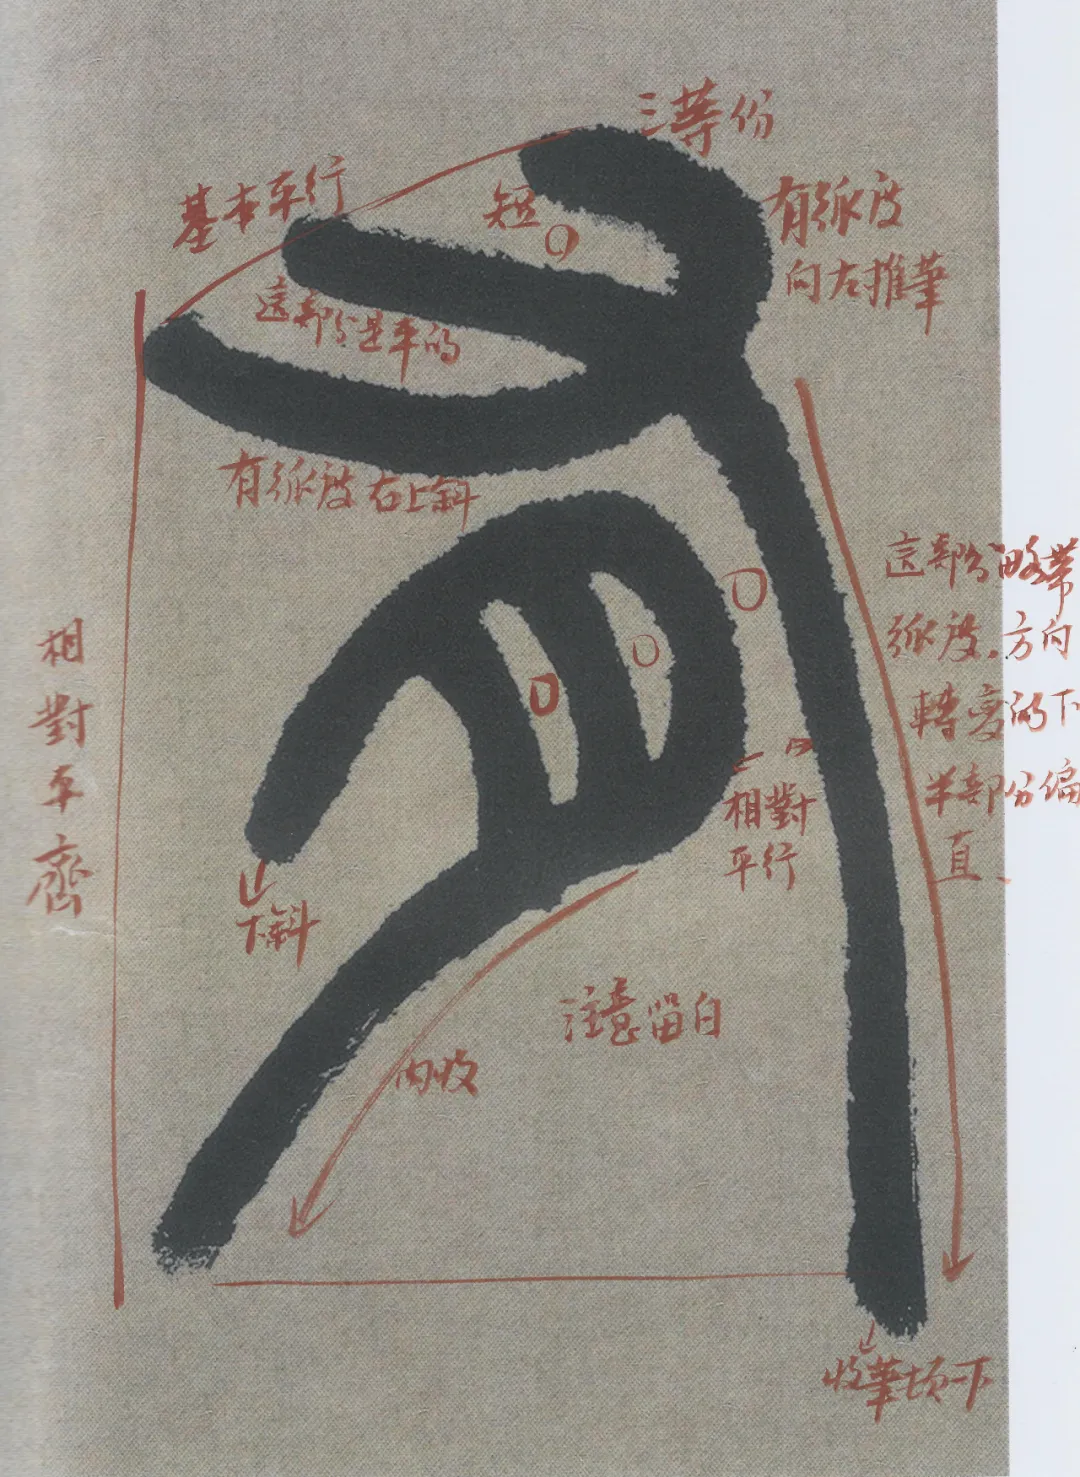 三等份
基本平行
短
有弧度
向左推筆
這部分是平的
有弧度右上斜
這部分略帶
弧度。方向
轉變的下
半部分偏
直、
相對平齊
相對
平行
下斜
注意留白
內收
收筆頓一下